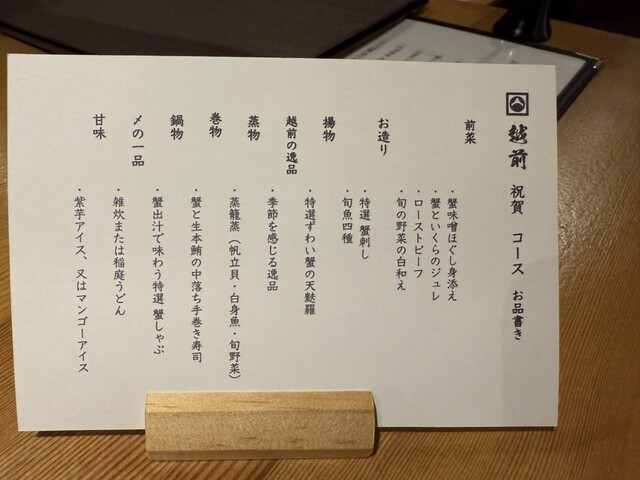 越前 祝賀 コース お品書き
前菜
・蟹味噌ほぐし身添え
・蟹といくらのジュレ
・ローストビーフ
・旬の野菜の白和え
お造り
・特選 蟹刺し
・旬魚四種
揚物
・特選ずわい蟹の天麩羅
越前の逸品
・季節を感じる逸品
蒸物
・蒸籠蒸(帆立貝・白身魚・旬野菜)
巻物
・蟹と生本鮪の中落ち手巻き寿司
鍋物
・蟹出汁で味わう特選 蟹しゃぶ
〆の一品
・雑炊または稲庭うどん
甘味
・紫芋アイス、又はマンゴーアイス